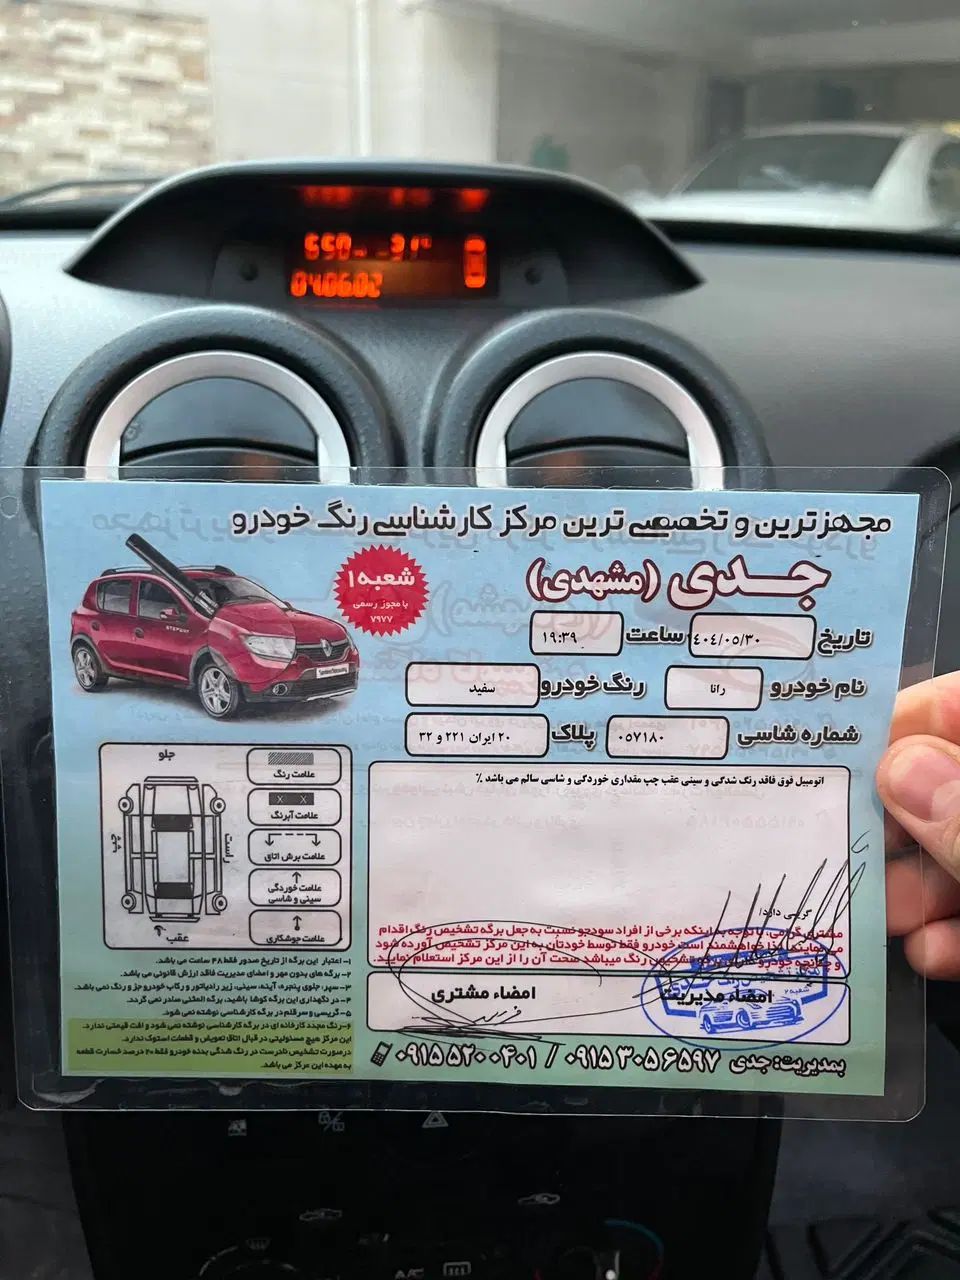 550 31°
04.06.02
مجهزترین و تخصصی‌ترین مرکز کارشناسی رنگ خودرو
جدی (مشهدی)
شعبه ۱
با مجوز رسمی
۷۹۷۷
تاریخ ۴۰۴/۰۵/۳۰ ساعت ۱۹:۳۹
نام خودرو رانا رنگ خودرو سفید
شماره شاسی ۰۵۷۱۸۰ پلاک ۲۰ ایران ۲۲۱ و ۳۲
اتومبیل فوق فاقد رنگ شدگی و سینی عقب چپ مقداری خوردگی و شاسی سالم می باشد ٪
جلو
چپ
راست
عقب
علامت رنگ
X X
علامت آبرنگ
علامت برش اتاق
علامت خوردگی
سینی و شاسی
علامت جوشکاری
گریسی دارد/
مشتری گرامی، با توجه به اینکه برخی از افراد سودجو نسبت به جعل برگه تشخیص رنگ اقدام
می نمایند، لذا خواهشمند است خودرو فقط توسط خودتان به این مرکز تشخیص آورده شود
و چنانچه خودرو دارای برگه تشخیص رنگ میباشد صحت آن را از این مرکز استعلام نمایید.
امضاء مدیریت
امضاء مشتری
۱- اعتبار این برگه از تاریخ صدور فقط ۴۸ ساعت می باشد.
۲- برگه های بدون مهر و امضای مدیریت فاقد ارزش قانونی می باشد.
۳- سپر، جلوی پنجره، آینه، سینی، زیر رادیاتور و رکاب خودرو جز و رنگ نمی باشد.
۴- در نگهداری این برگه کوشا باشید، برگه المثنی صادر نمی گردد.
۵- گریسی و سرقلم در برگه کارشناسی نوشته نمی شود.
۶- رنگ مجدد کارخانه ای در برگه کارشناسی نوشته نمی شود و افت قیمتی ندارد.
این مرکز هیچ مسئولیتی در قبال اتاق تعویض و قطعات استوک ندارد.
درصورت تشخیص نادرست در رنگ شدگی بدنه خودرو فقط ۲۰ درصد خسارت قطعه
به عهده این مرکز می باشد.
بمدیریت: جدی ۰۹۱۵۳۰۵۶۵۹۷ / ۰۹۱۵۵۲۰۰۴۰۱